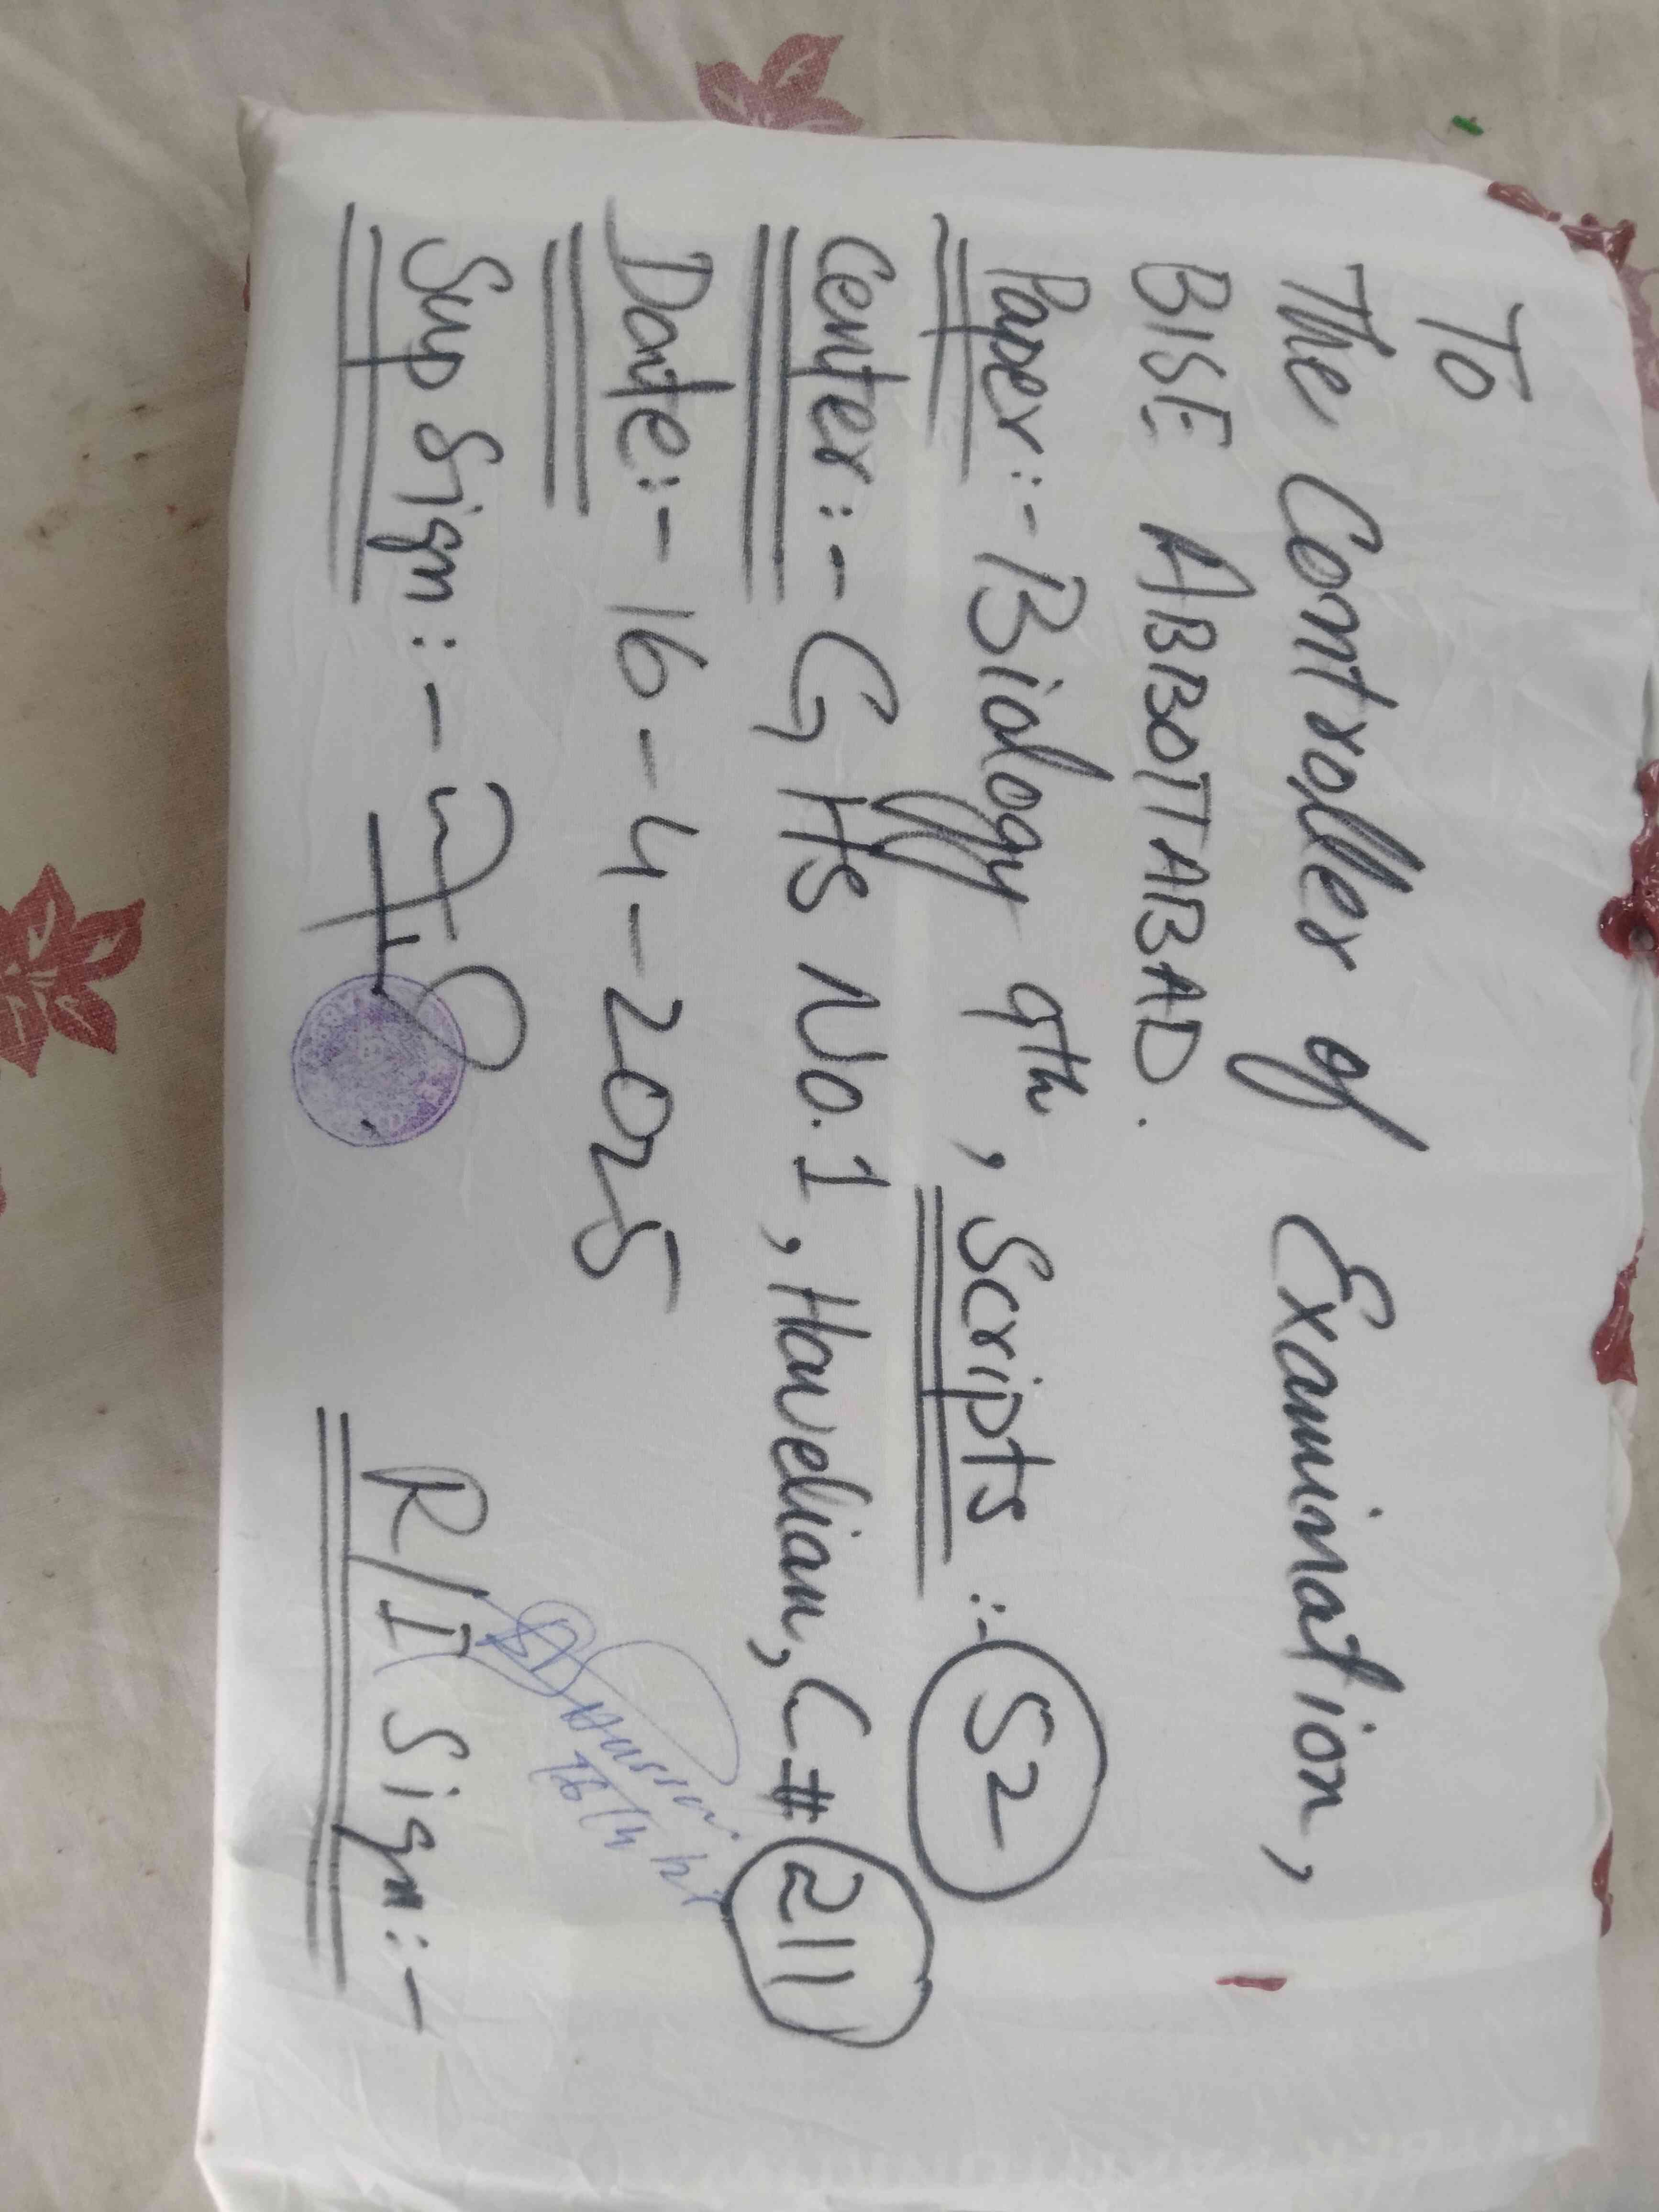 To
The Controller of Examination,
BISE ABBOTTABAD.
Paper:- Biology 9th, Scripts :- 52
Center:- GHS No.1, Havelian, C# 211
Date:- 16-4-2025
Sup Sign:-
R/I Sign:-